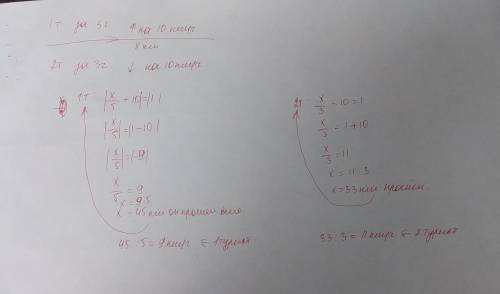 1т за 5ч ↑ на 10 км/ч
x км
2т за 3ч ↓ на 10 км/ч
1т: |x/5 + 10| = |1|
|x/5| = |1-10|
|x/5| = |-9|
x/5 = 9
x = 9·5
x = 45 км он прошел
45 : 5 = 9 км/ч ← 1 турист
2т: x/3 - 10 = 1
x/3 = 1 + 10
x/3 = 11
x = 11·3
x = 33 км прошел.
33 : 3 = 11 км/ч ← 2 турист